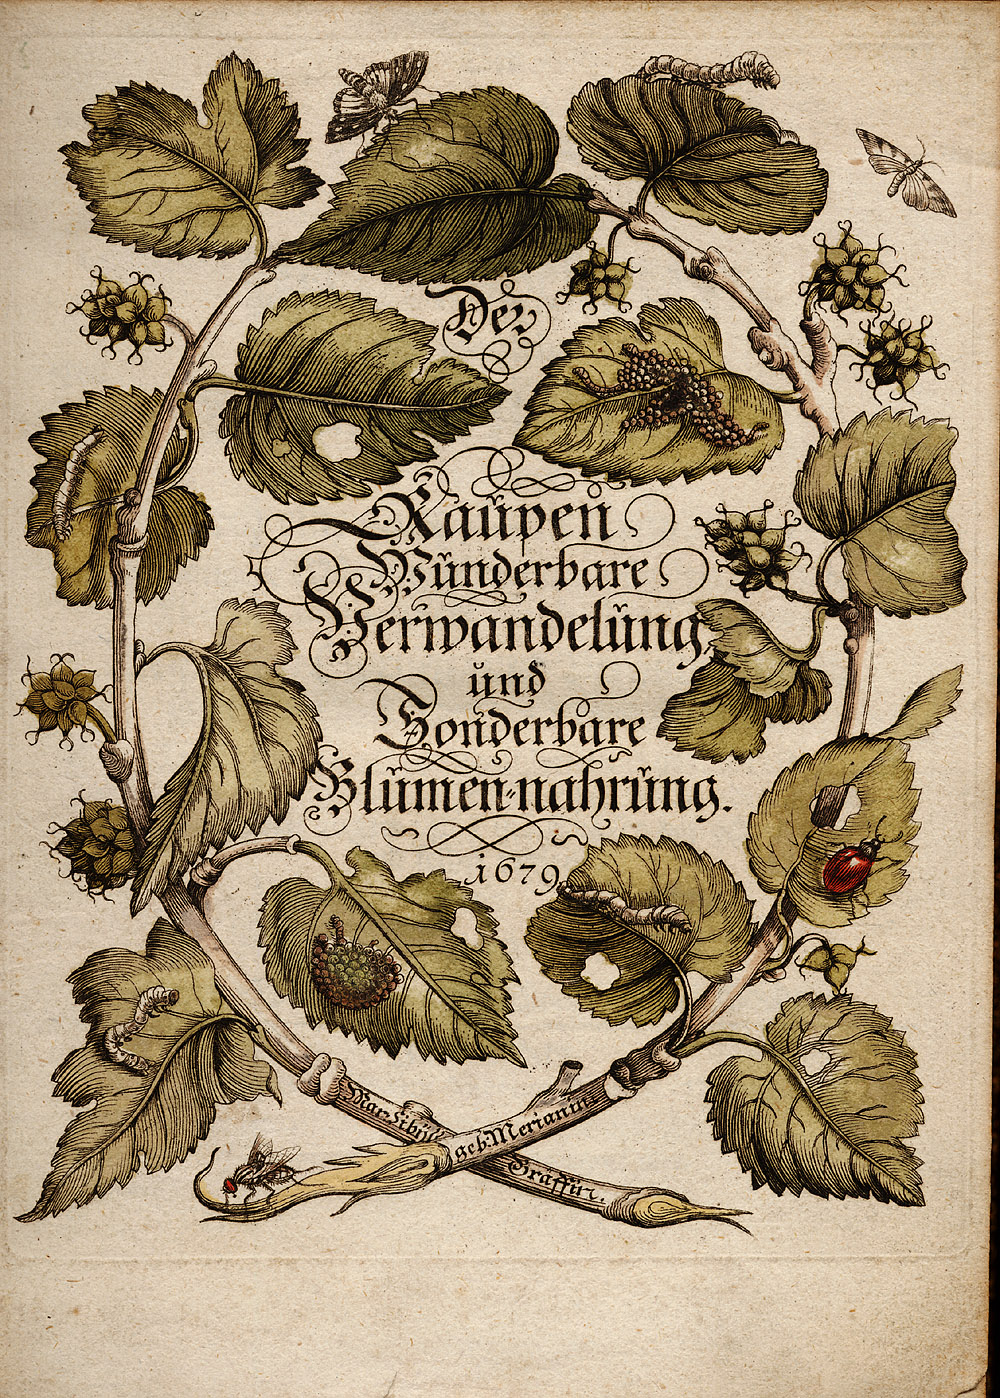 Der
Raupen
Wunderbare
Verwandelung,
und
Sonderbare
Blumen-nahrung.
1679
Mar. Sibÿlla
geb: Merianin.
Gräffin.